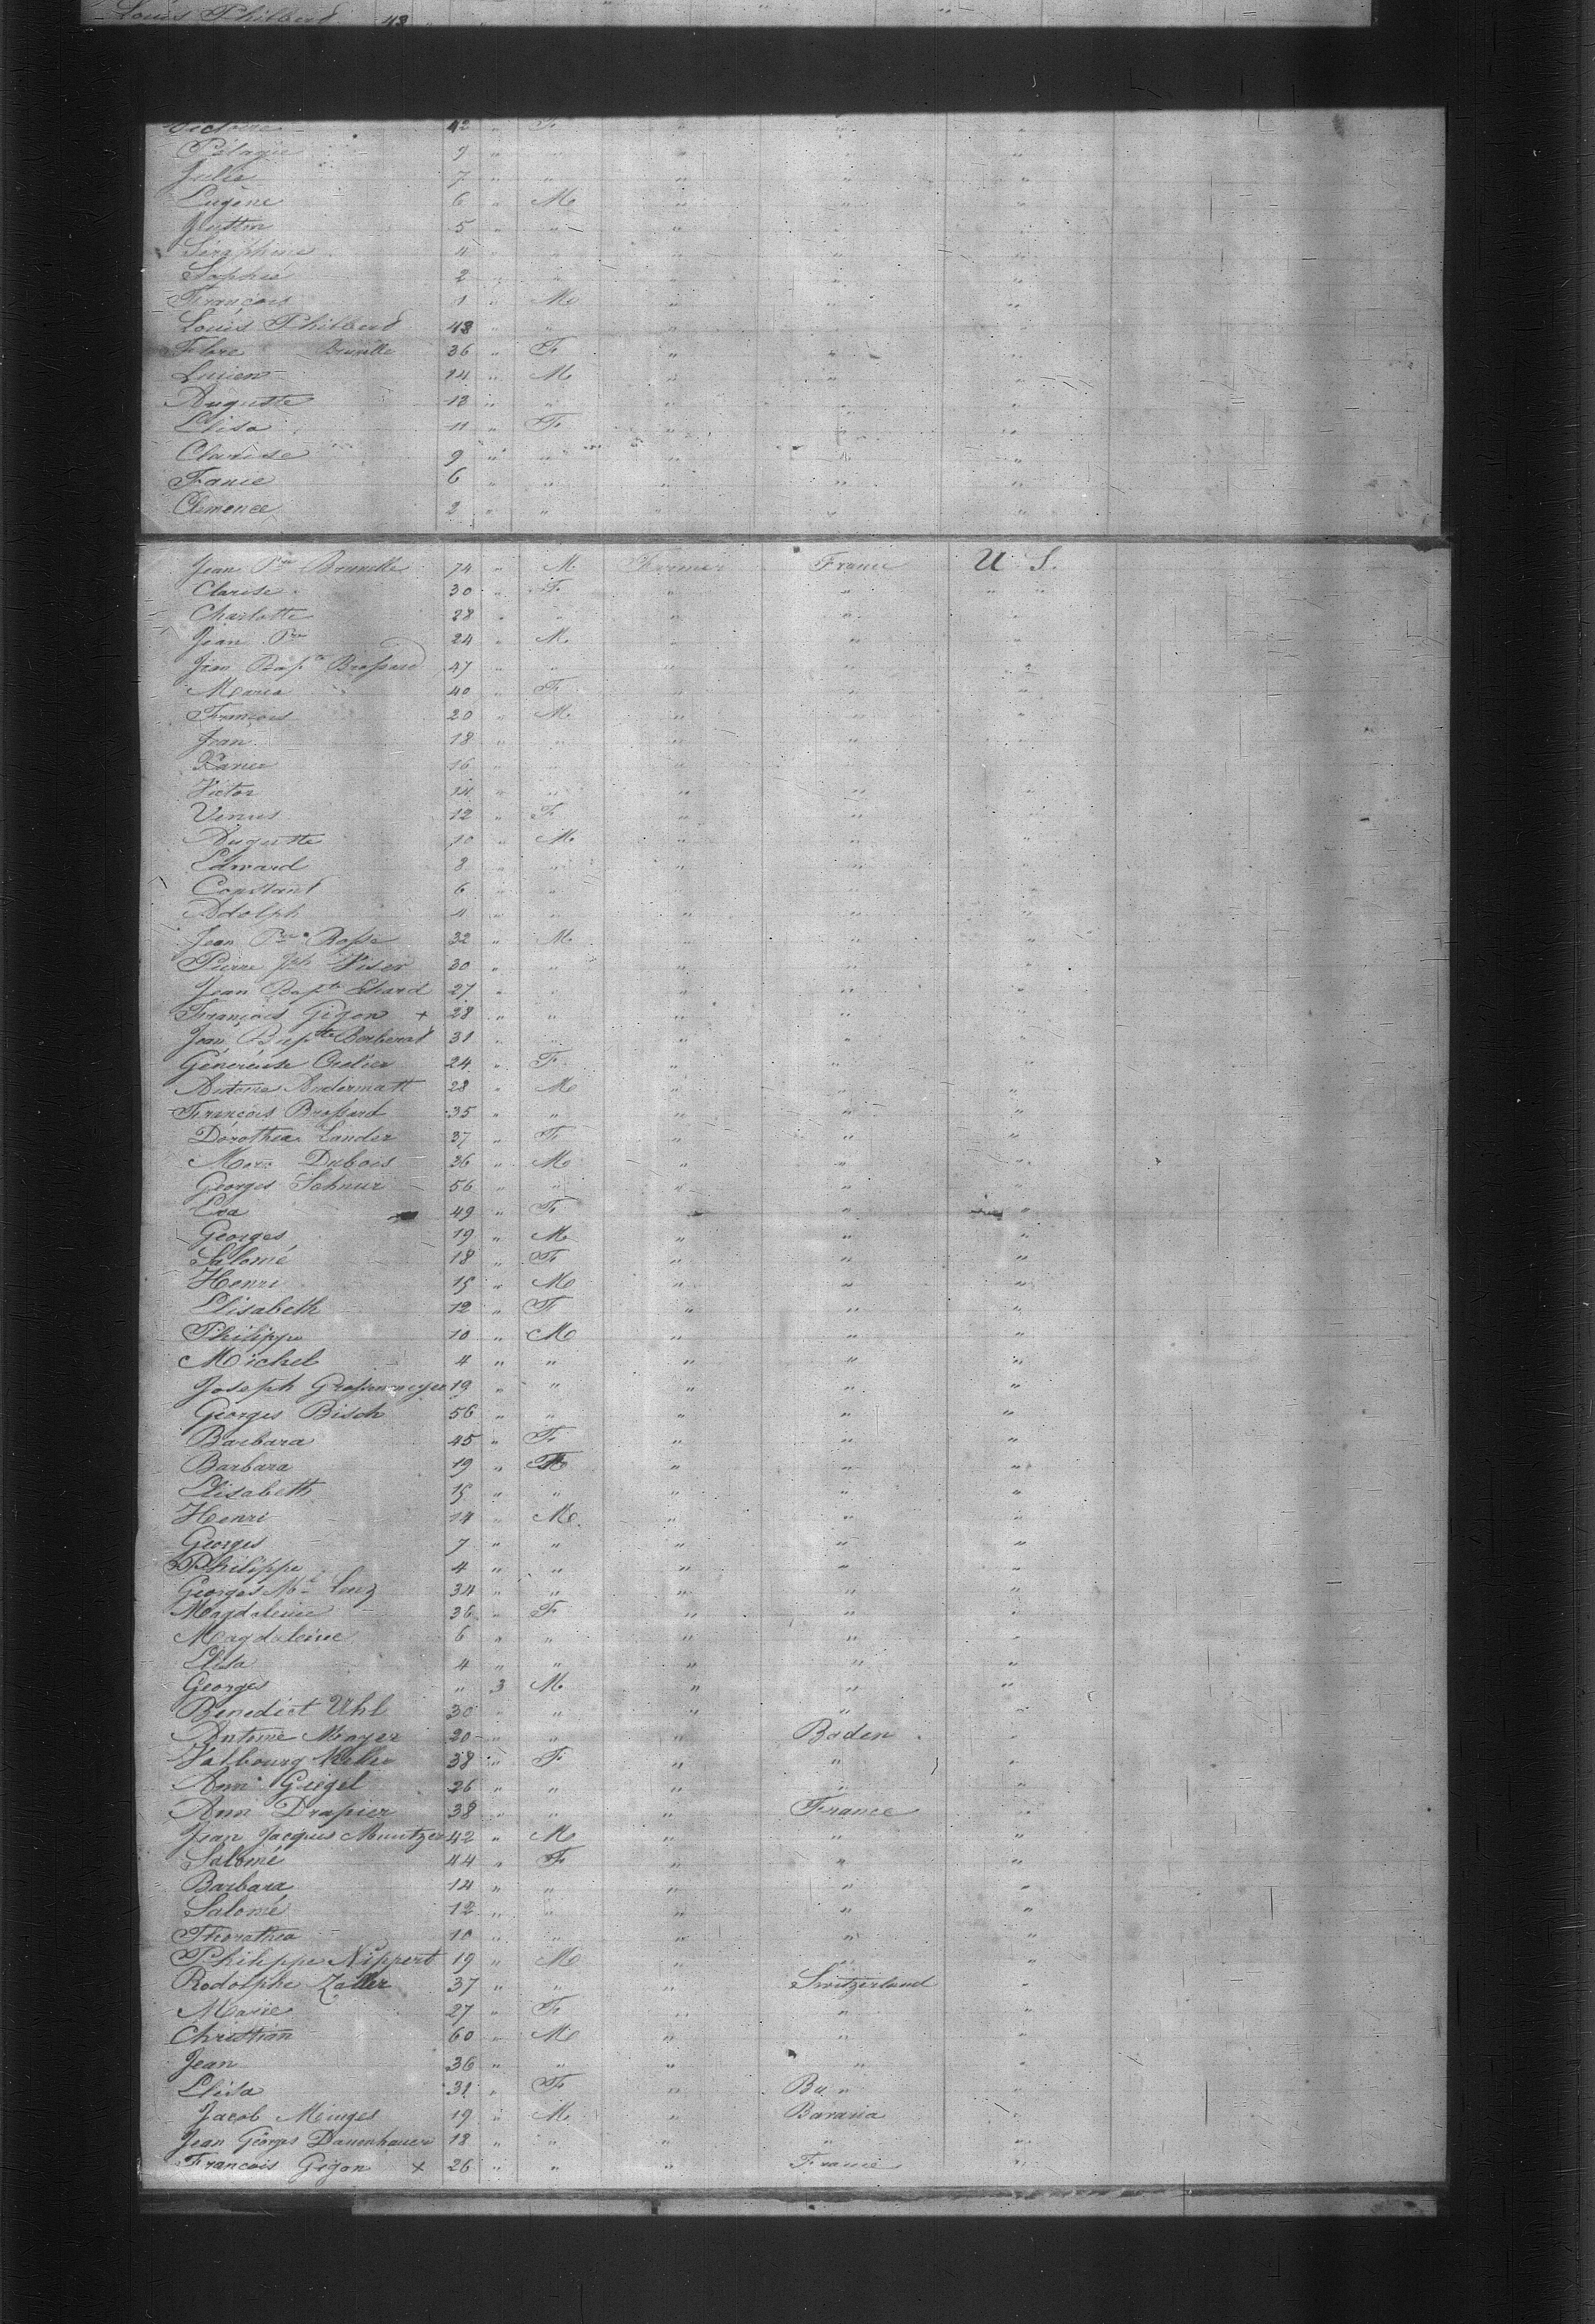 Louis Philberd 48
Victoire 42 " F " " "
Pélagie 9 " " " " "
Julie 7 " " " " "
Eugène 6 " M " " "
Justin 5 " " " " "
Séraphine 4 " " " " "
Sophie 2 " " " " "
François 1 " M " " "
Louis Philberd 48 " " " " "
Flore Brunelle 36 " F " " "
Lucien 14 " M " " "
Auguste 13 " " " " "
Elisa 11 " F " " "
Clarisse 9 " " " " "
Fanie 6 " " " " "
Clemence 2 " " " " "
Jean Pre Brunelle 74 " M Farmer France U S.
Clarise 30 " F " " " "
Charlotte 28 " " " " "
Jean Pre 24 " M " " "
Jean Bapte Brossard 47 " " " " "
Maria 40 " F " " "
François 20 " M " " "
Jean 18 " " " " "
Xavier 16 " " " " "
Victor 14 " " " " "
Venus 12 " F " " "
Auguste 10 " M " " "
Edward 8 " " " " "
Constant 6 " " " " "
Adolph 4 " " " " "
Jean Pre Rosse 32 " M " " "
Pierre Jph 30 " " " " "
Jean Bapte 27 " " " " "
François Gigon + 28 " " " " "
Jean Bapte Berberat 31 " " " " "
Généreuse 24 " F " " "
Antoine Andermatt 28 " M " " "
François Brossard 35 " " " " "
Dorothea Lander 37 " F " " "
Marc Dubois 36 " M " " "
Georges Schnur 56 " " " " "
Eva 49 " F " " "
Georges 19 " M " " "
Salomé 18 " F " " "
Henri 15 " M " " "
Elisabeth 12 " F " " "
Philippe 10 " M " " "
Michel 4 " " " " "
Joseph Grossenmeyer 19 " " " " "
Georges Bisch 56 " " " " "
Barbara 45 " F " " "
Barbara 19 " F " " "
Elisabeth 15 " " " " "
Henri 14 " M " " "
Georges 7 " " " " "
Philippe 4 " " " " "
Georges Ml Luz 34 " " " " "
Magdaleine 36 " F " " "
Magdaleine 6 " " " " "
Elisa 4 " " " " "
Georges " 3 M " " "
Benedict Uhl 30 " " " " "
Antoine Mayer 20 " " " Baden "
Valbourg Keller 38 " F " " "
Ann Giegel 26 " " " " "
Ann Drapier 38 " " " France "
Jean Jacques Muntzer 42 " M " " "
Salomé 44 " F " " "
Barbara 14 " " " " "
Salomé 12 " " " " "
Thorathea 10 " " " " "
Philippe Nippert 19 " M " " "
Rodolphe Zaller 37 " " " Switzerland "
Marie 27 " F " " "
Christian 60 " M " " "
Jean 36 " " " " "
Elisa 31 " F " Ba " "
Jacob Minges 19 " M " Bavaria "
Jean Georges Dauenhauer 18 " " " " "
François Gigon + 26 " " " France "